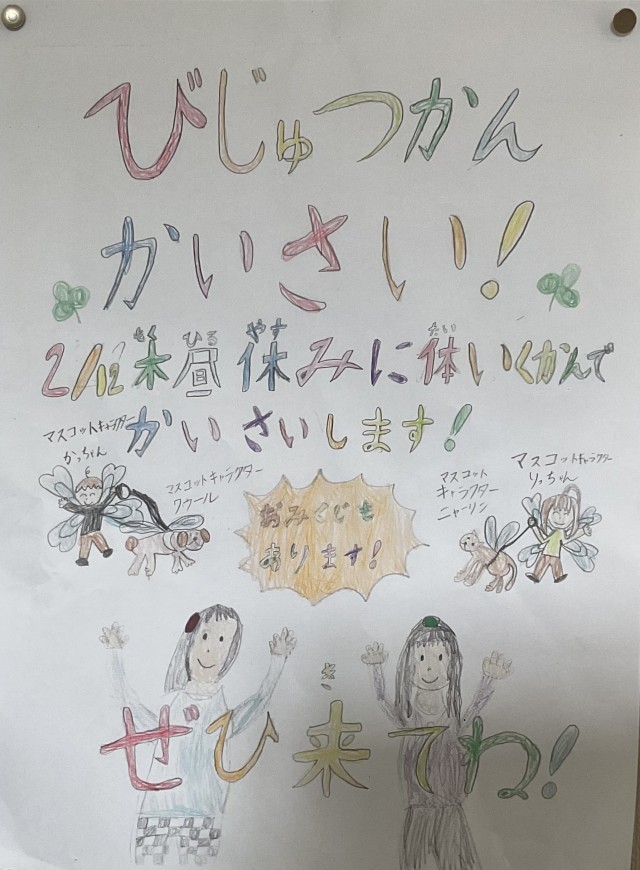 びじゅつかん
かいさい!
2/12 木昼休みに体いくかんで
もく ひる やす たい
かいさいします!
マスコットキャラクター
かっちゃん
マスコットキャラクター
ワウール
おみくじも
あります!
マスコット
キャラクター
ニャーリン
マスコットキャラクター
りっちゃん
き
ぜひ来てね!